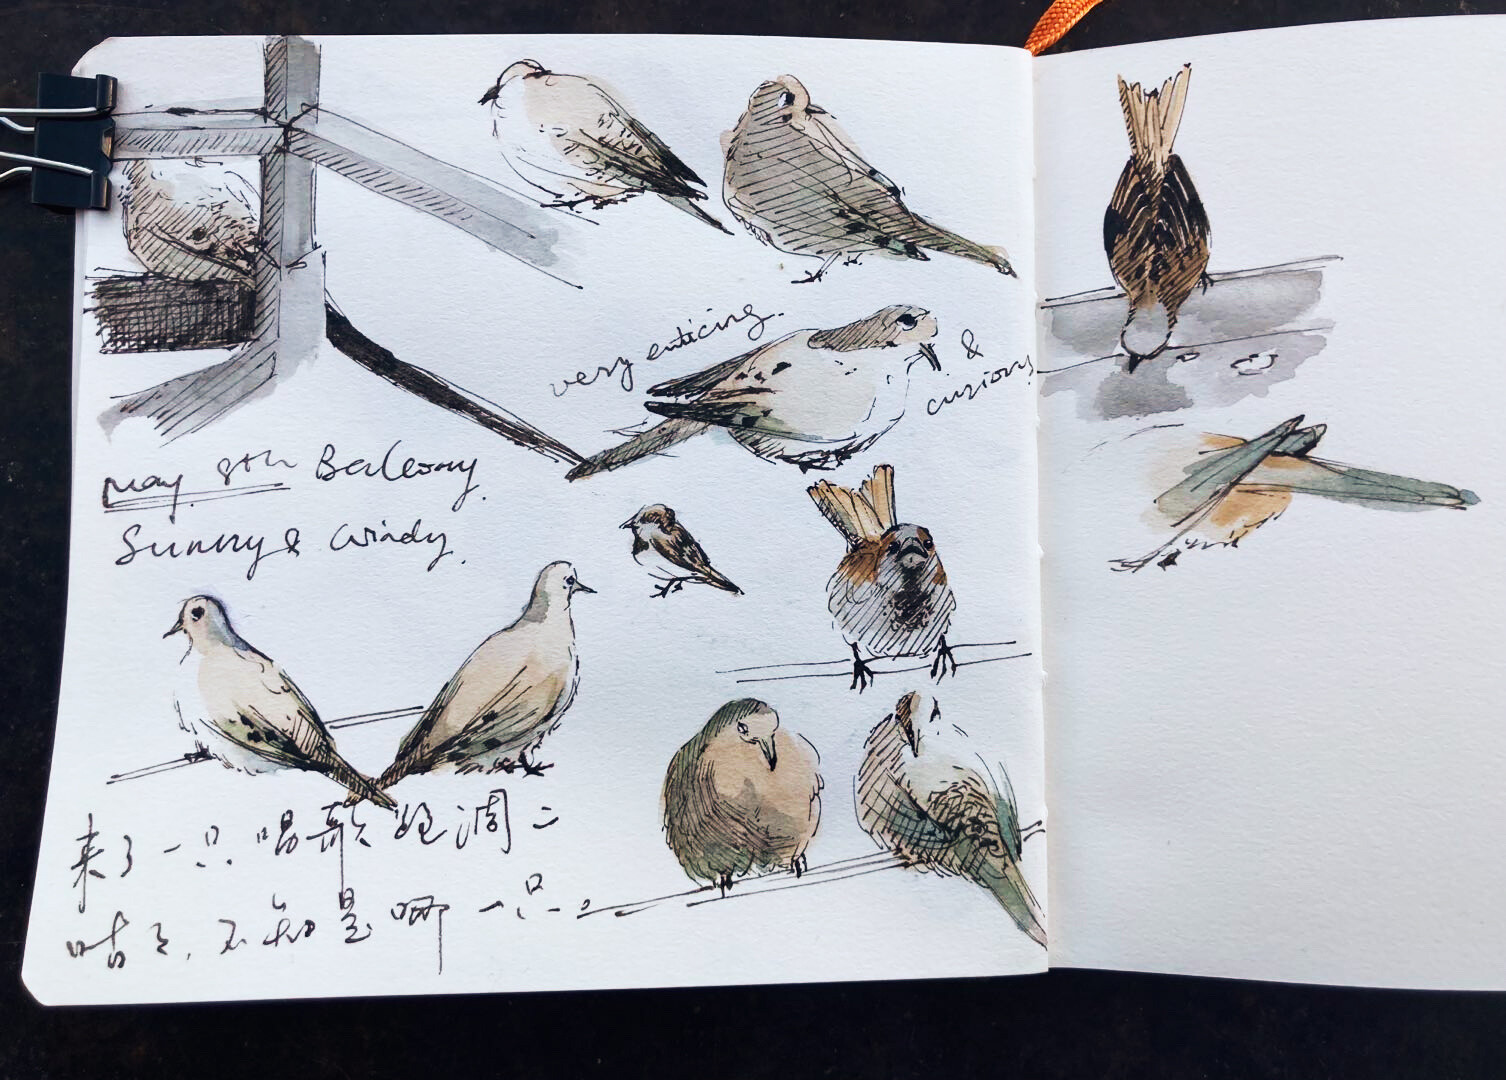 very enticing.
& curious
May 8th Balcony.
Sunny & Windy.
来了一只唱歌跑调
咕々,不知是哪一只。